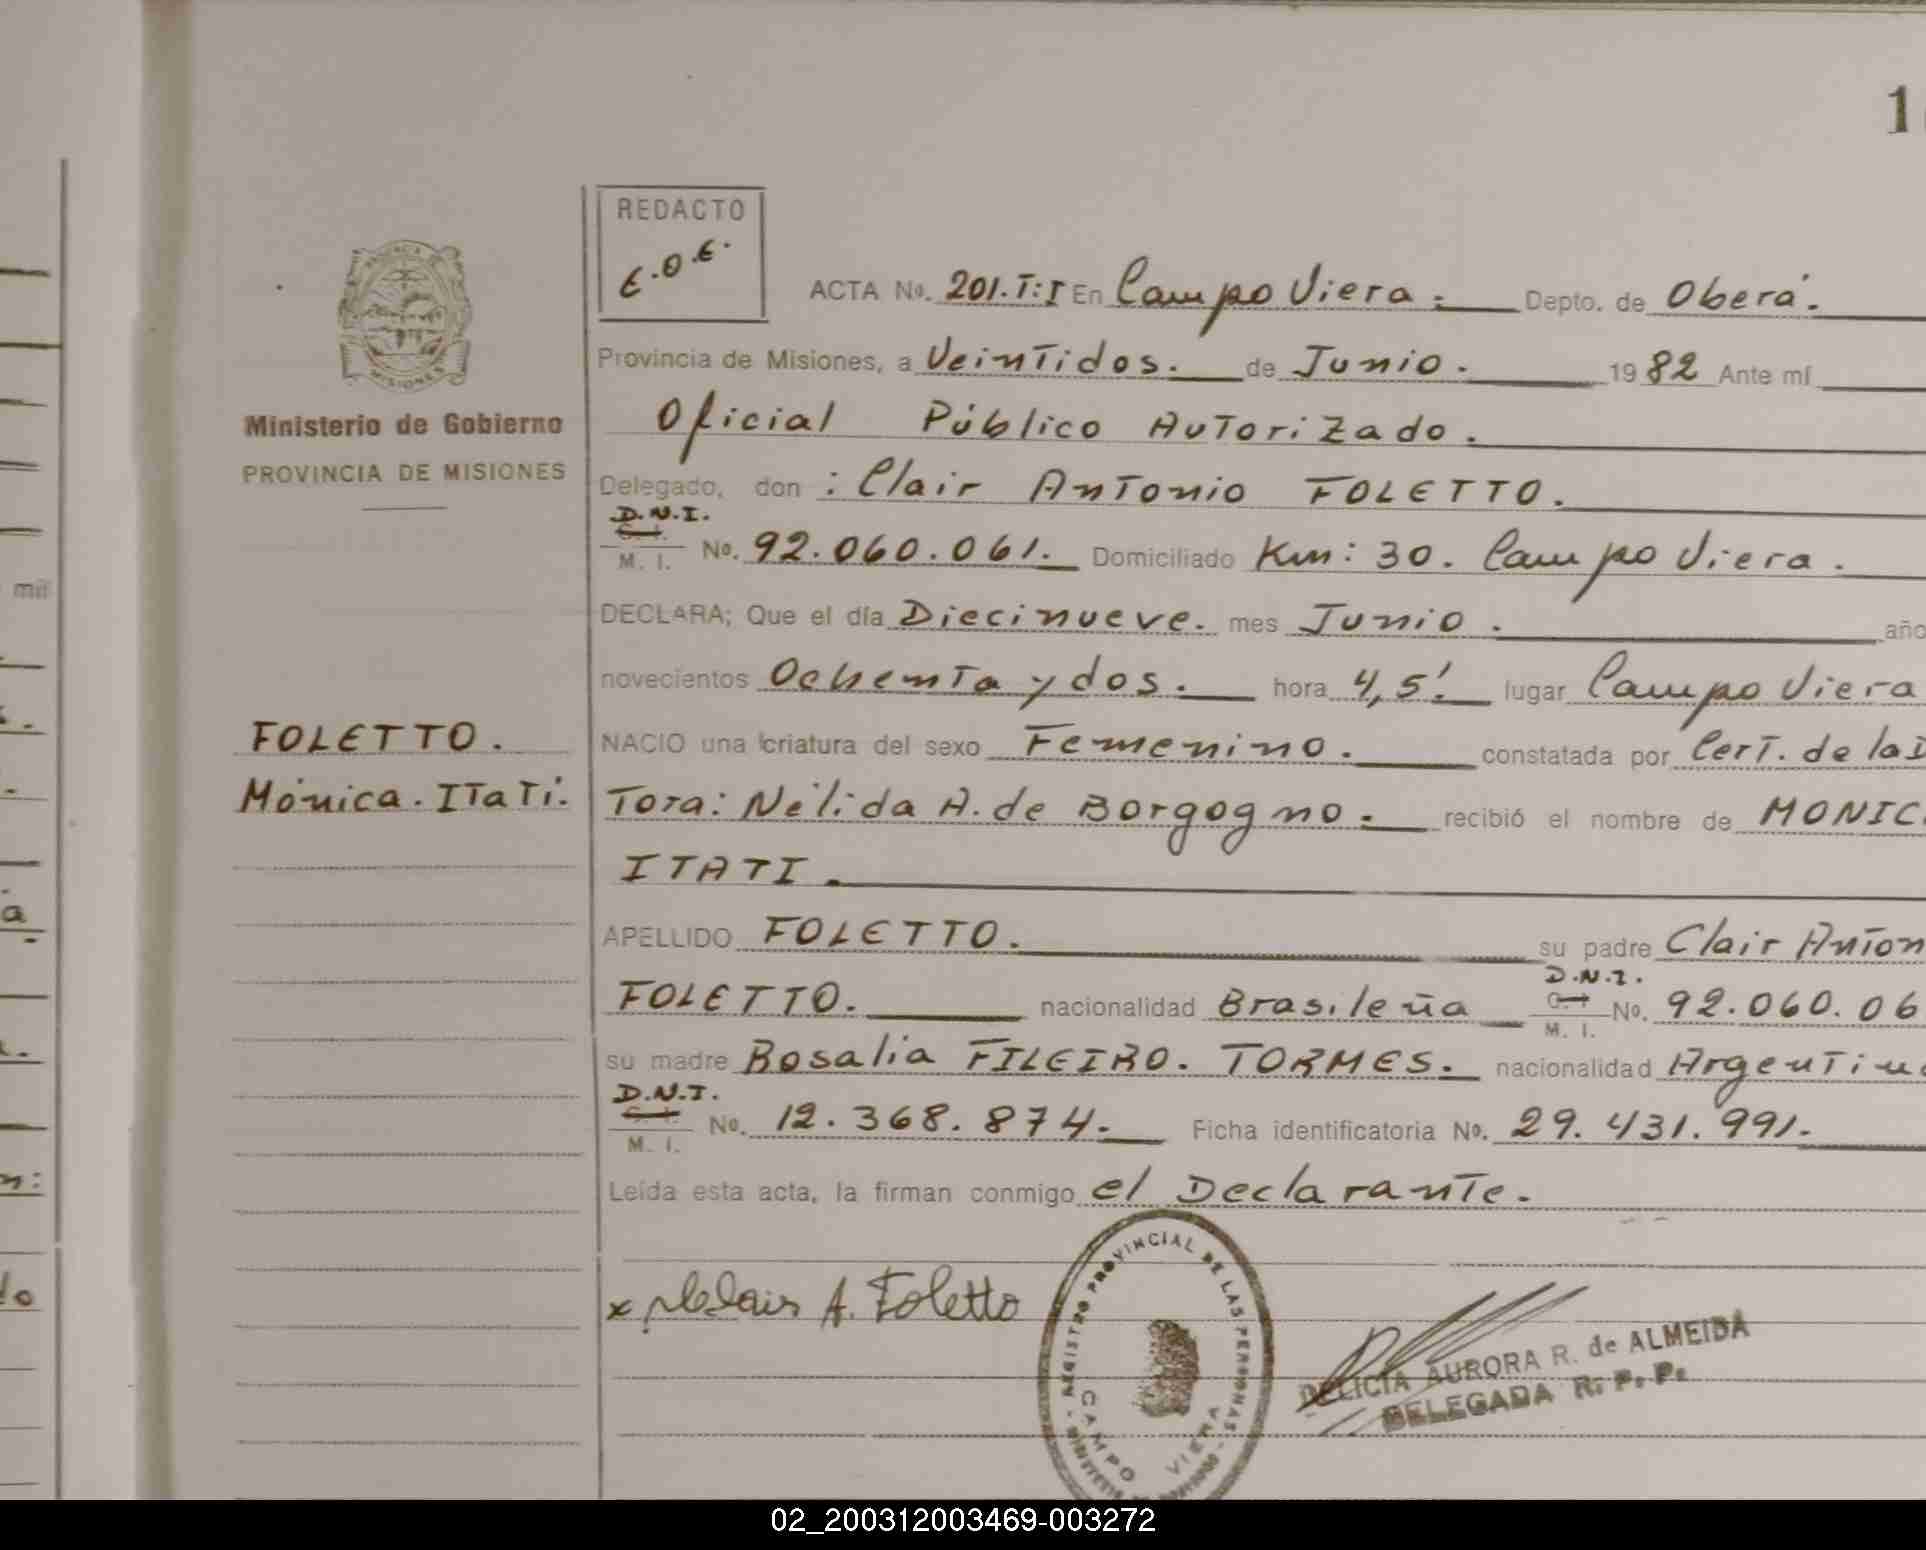 1
REDACTO
E.O.E.
ACTA No. 201.T:I En Campo Viera. Depto. de Oberá.
Provincia de Misiones, a Veintidos. de Junio. 1982 Ante mí
Oficial Público Autorizado.
Ministerio de Gobierno
PROVINCIA DE MISIONES
MISIONES
Delegado, don : Clair Antonio FOLETTO.
D.N.I.
M. I. No. 92.060.061. Domiciliado Km: 30. Campo Viera.
mil
DECLARA; Que el día Diecinueve. mes Junio. año
novecientos Ochenta y dos. hora 4,5'. lugar Campo Viera
FOLETTO.
Mónica. Itatí.
NACIO una criatura del sexo Femenino. constatada por Cert. de la D
Tora: Nélida A. de Borgogno. recibió el nombre de MONIC
ITATI.
APELLIDO FOLETTO. su padre Clair Anton
FOLETTO. nacionalidad Brasileña D.N.I. C. I. M. I. No. 92.060.06
su madre Rosalia FILEIRO. TORMES. nacionalidad Argentin
D.N.I.
M. I. No. 12.368.874. Ficha identificatoria No. 29.431.991.
Leída esta acta, la firman conmigo el Declarante.
x A. Foletto
REGISTRO PROVINCIAL DE LAS PERSONAS - MINISTERIO DE GOBIERNO -
CAMPO VIERA
DELICIA AURORA R. de ALMEIDA
DELEGADA R. P. P.
02_200312003469-003272